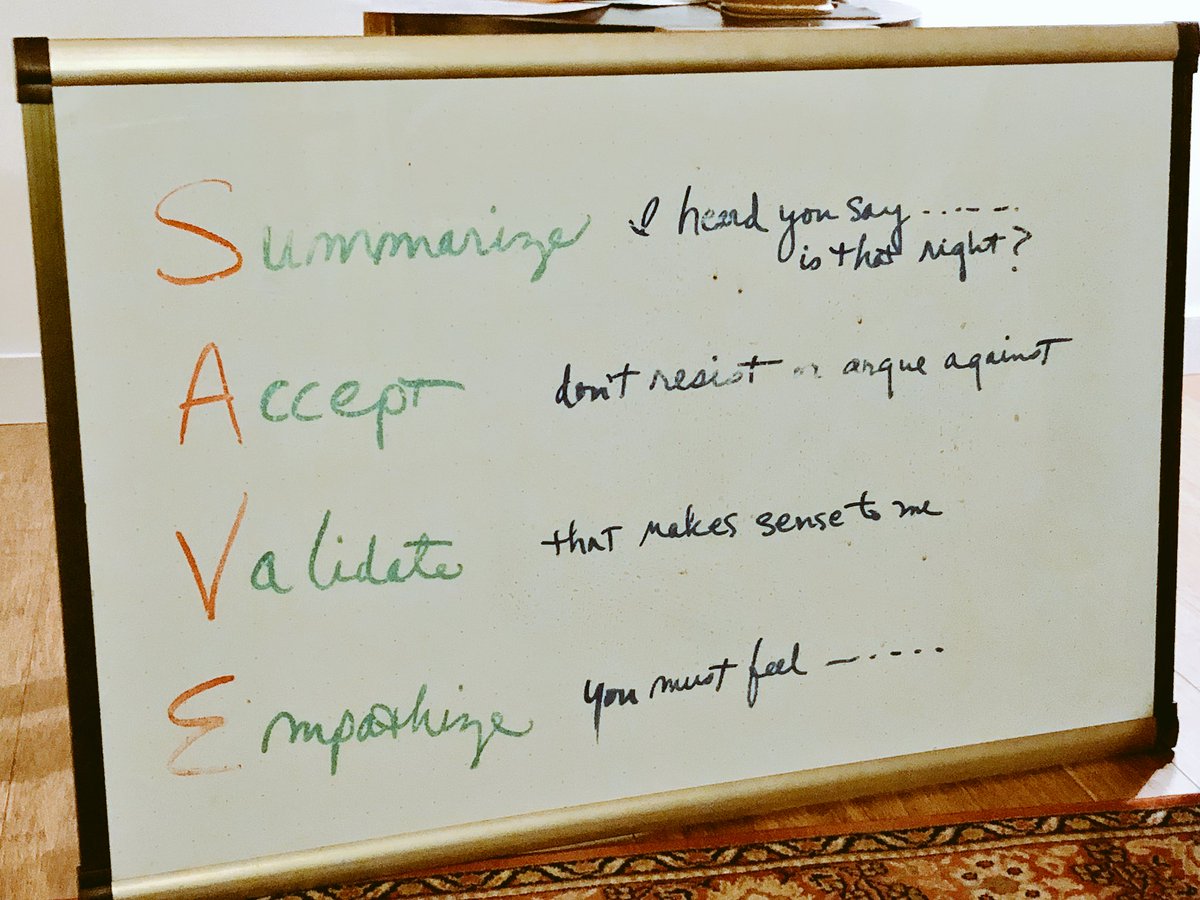 Summarize I heard you say ......
is that right?
Accept don't resist or argue against
Validate that makes sense to me
Empathize you must feel —.....